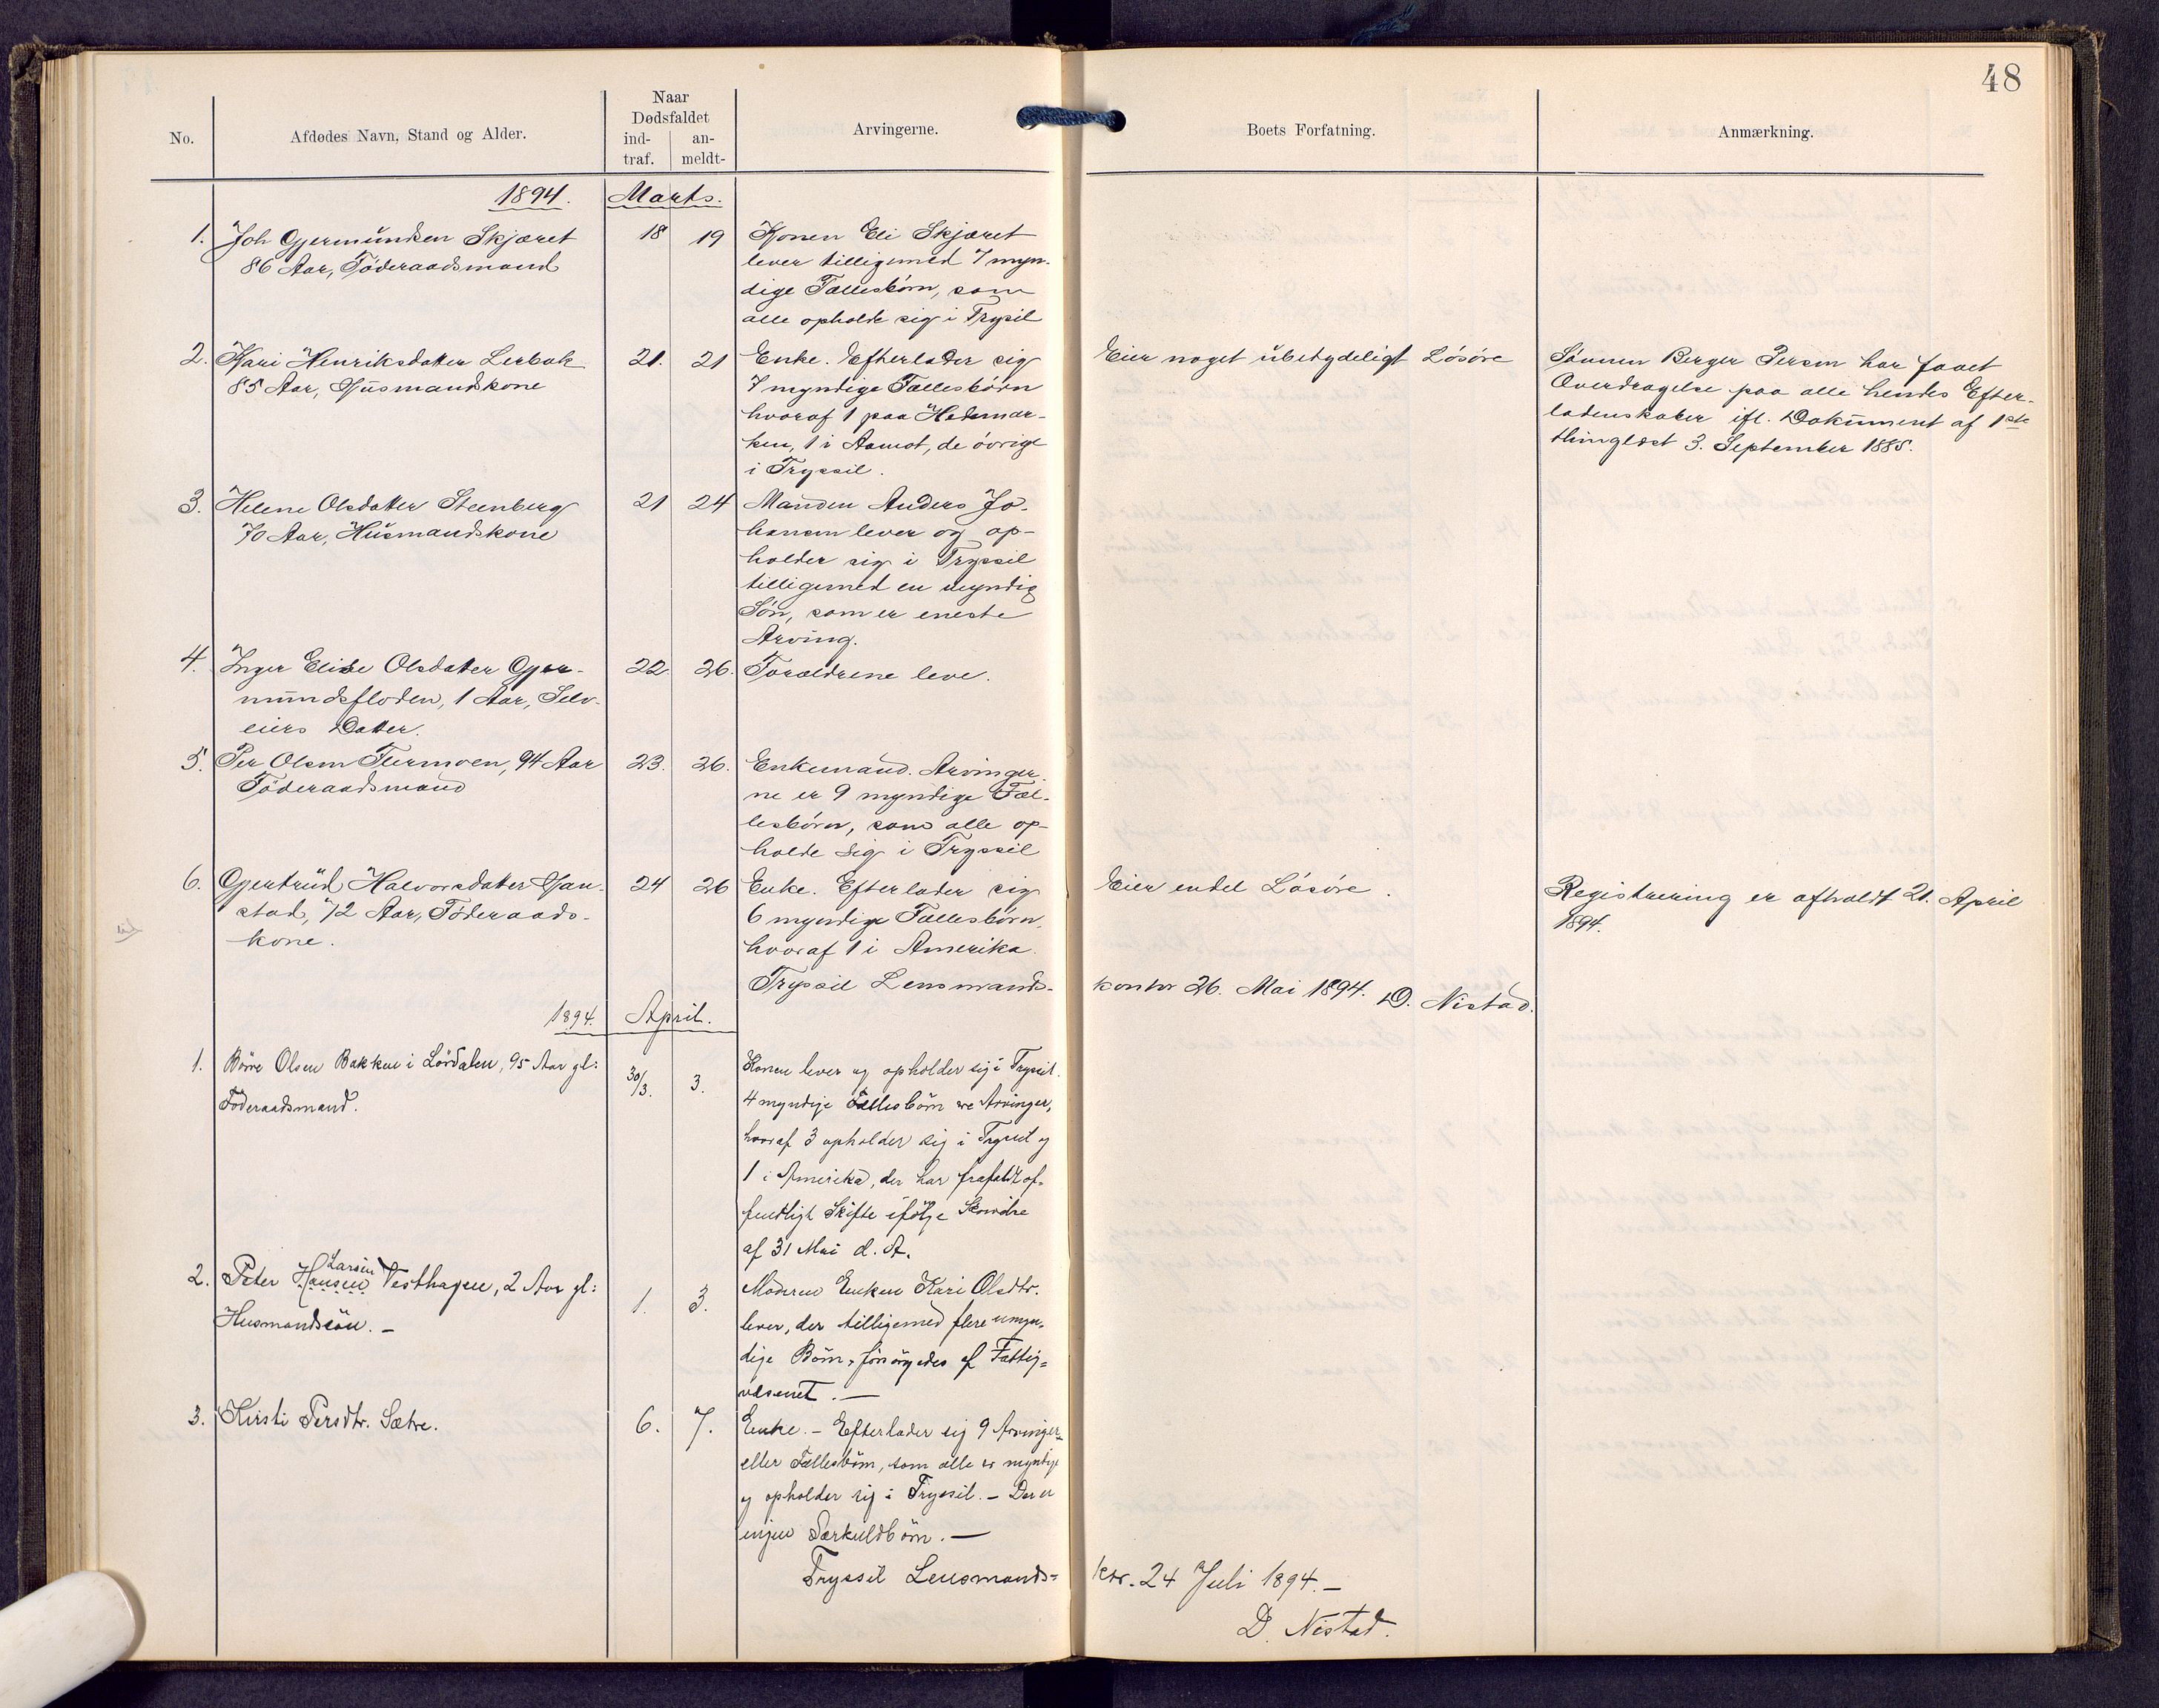 48
No.
Afdødes Navn, Stand og Alder.
Naar
Dødsfaldet
ind-
traf.
an-
meldt-
Arvingerne.
Boets Forfatning.
Anmærkning.
1894. Marts.
1. Joh Gjermundsen Skjæret
86 Aar, Föderaadsmand
18 19
Konen Eli Skjæret
lever tilligemed 7 myn-
dige Fællesbörn, som
alle opholde sig i Trysil
2. Kari Henriksdatter Lerbak
85 Aar, Husmandskone
21. 21
Enke. Efterlader sig
7 myndige Fællesbörn
hvoraf 1 paa Hedemar-
ken, 1 i Aamot, de övrige
i Tryssil.
Eier noget übetydeligt Lösöre
Sönnen Berger Persen har faaet
Overdragelse paa alle hendes Efter-
ladenskaber ifl. Dokument af 1ste
thinglæst 3. September 1885.
3. Helene Olsdatter Steenberg
70 Aar, Husmandskone
21 24
Manden Anders Jo-
hansen lever og op-
holder sig i Tryssil
tilligemed en myndig
Sön, som er eneste
Arving.
4. Inger Elise Olsdatter Gjer-
mundsfloden, 1 Aar, Selv-
eiers Datter.
22 26.
Forældrene leve.
5. Per Olsen Flermoen, 94 Aar
Föderaadsmand
23. 26.
Enkemand. Arvinger-
ne er 9 myndige Fæl-
lesbörn, som alle op-
holde sig i Tryssil
6. Gjertrud Halvorsdatter Gjan-
stad, 72 Aar, Föderaads-
kone.
24 26
Enke. Efterlader sig
6 myndige Fællesbörn,
hvoraf 1 i Amerika.
Eier endel Lösöre.
Registrering er afholdt 21. April
1894.
Tryssil Lensmands-
kontor 26. Mai 1894. D. Nistad.
1894. April.
1. Börre Olsen Bakken i Lördalen, 95 Aar gl:
Föderaadsmand.
30/3. 3.
Konen lever og opholder sig i Trysil.
4 myndige Fællesbörn ere Arvinger,
hvoraf 3 opholder sig i Trysil og
1 i Amerika, der har frafaldt of-
fentligt Skifte ifölge Skrivelse
af 31 Mai d. A.
2. Peter Hansen Larsen Vesthagen, 2 Aar gl:
Husmandssön. –
1. 3.
Moderen Enken Kari Olsdtr.
lever, der tilligemed flere umyn-
dige Börn, forsörgedes af Fattig-
væsenet. —
3. Kirsti Persdtr. Sætre.
6. 7.
Enke. – Efterlader sig 9 Arvinger
eller Fællesbörn, som alle er myndige
og opholder sig i Tryssil. – Der er
ingen Særkuldbörn. —
Tryssil Lensmands-
ktr. 24 Juli 1894. –
D. Nistad.